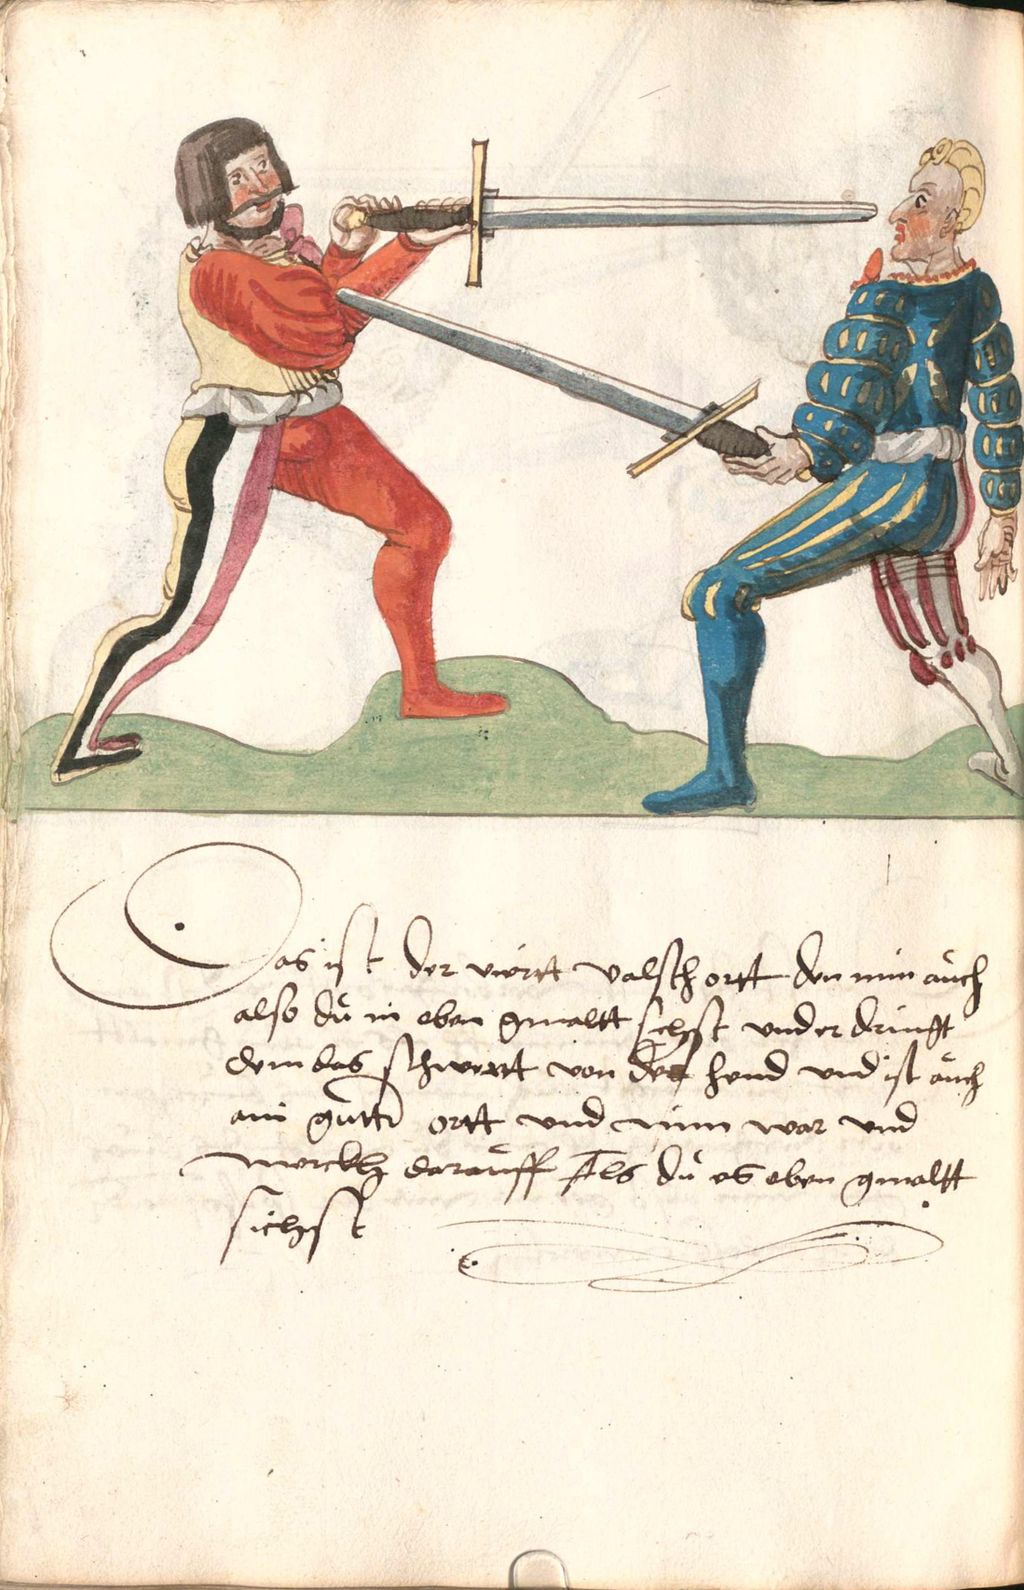 Das ist der viertt valsch ortt den nim auch
also du in eben gmaltt sichst und er dringt
dem das schwertt von der hend und ist auch
ain gutter ortt und nim war und
merckh darauff Als du es eben gmaltt
sichst